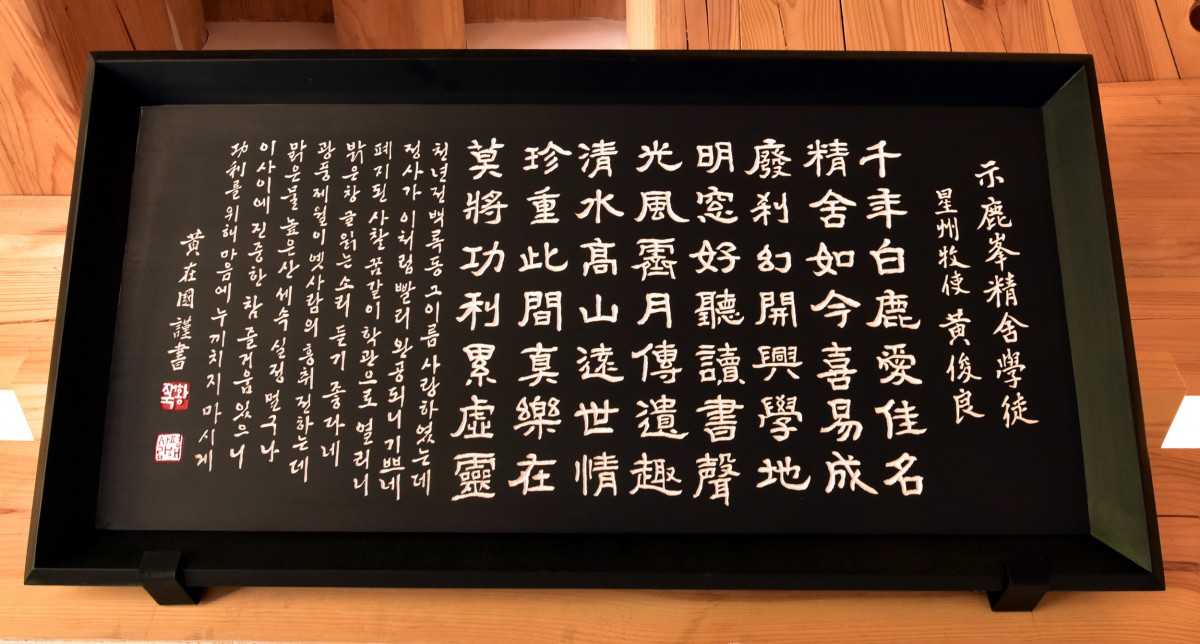 示鹿峯精舍學徒
星州牧使 黃俊良
千年白鹿愛佳名
精舍如今喜易成
廢刹幻開興學地
明窓好聽讀書聲
光風霽月傳遺趣
清水高山遠世情
珍重此間真樂在
莫將功利累虛靈
천년전 백록동 그 이름 사랑하였는데
정사가 이처럼 빨리 완공되니 기쁘네
폐지된 사찰 꿈같이 학관으로 열리니
밝은창 글읽는 소리 듣기 좋다네
광풍제월이 옛사람의 흥취 전하는데
맑은물 높은산 세속 실정 멀구나
이사이에 진중한 참 즐거움 있으니
功利를 위해 마음에 누끼치지 마시게
黃在國 謹書
황재국
평해사람